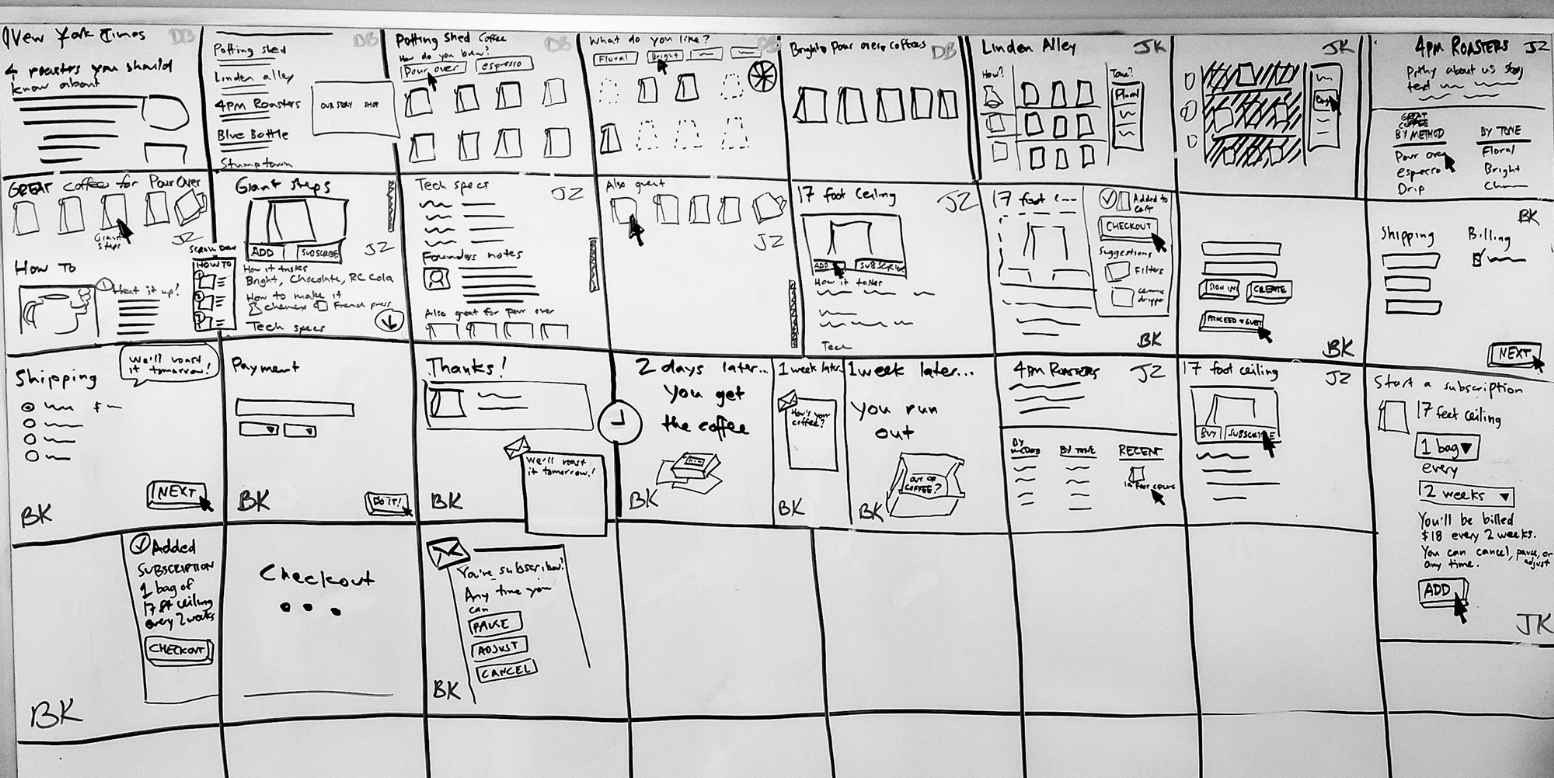 New York Times
DB
4 roasters you should
know about
Potting shed
DB
Linden alley
4PM Roasters
Blue Bottle
Stumptown
OUR STORY SHOP
Potting Shed Coffee
DB
How do you brew?
Pour over
espresso
What do you like?
DB
Floral
Bright
Bright Pour over coffees
DB
Linden Alley
JK
How?
Tone?
Floral
JK
4PM ROASTERS
JZ
Pithy about us story
text
GREAT
COFFEE
BY METHOD
BY TONE
Pour over
Floral
espresso
Bright
Drip
GREAT coffee for Pour Over
Giant
Steps
JZ
How To
Heat it up!
Scroll Down
HOW TO
Giant Steps
ADD
SUBSCRIBE
JZ
How it tastes
Bright, Chocolate, RC Cola
How to make it
Chemex
French press
Tech specs
Tech specs
Founders notes
Also great for pour over
Also great
JZ
17 foot Ceiling
JZ
ADD
SUBSCRIBE
How it tastes
Tech
17 foot c---
Added to
cart
CHECKOUT
Suggestions
Filters
ceramic
dripper
BK
SIGN IN
CREATE
PROCEED
BK
BK
Shipping
Billing
NEXT
Shipping
We'll roast
it tomorrow!
$
NEXT
BK
Payment
BK
DO IT!
Thanks!
We'll roast
it tomorrow!
BK
2 days later...
You get
the coffee
BK
1 week later
How's your
coffee?
BK
1 week later...
You run
out
OUT OF
COFFEE?
BK
4PM ROASTERS
JZ
BY
METHOD
BY TONE
RECENT
17 foot ceiling
JZ
BUY
SUBSCRIBE
Start a subscription
17 feet ceiling
1 bag
every
2 weeks
You'll be billed
$18 every 2 weeks.
You can cancel, pause, or
adjust
any time.
ADD
JK
Added
SUBSCRIPTION
1 bag of
17 ft ceiling
every 2 weeks
CHECKOUT
BK
Checkout
...
You've subscribed!
Any time you
can
PAUSE
ADJUST
CANCEL
BK